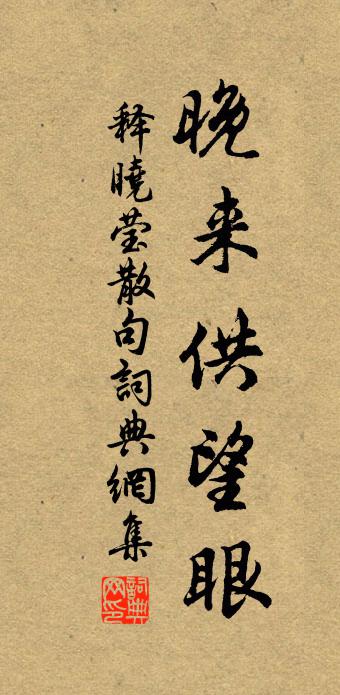 晚来供望眼
释曉莹散句詞典網集
詞典网印